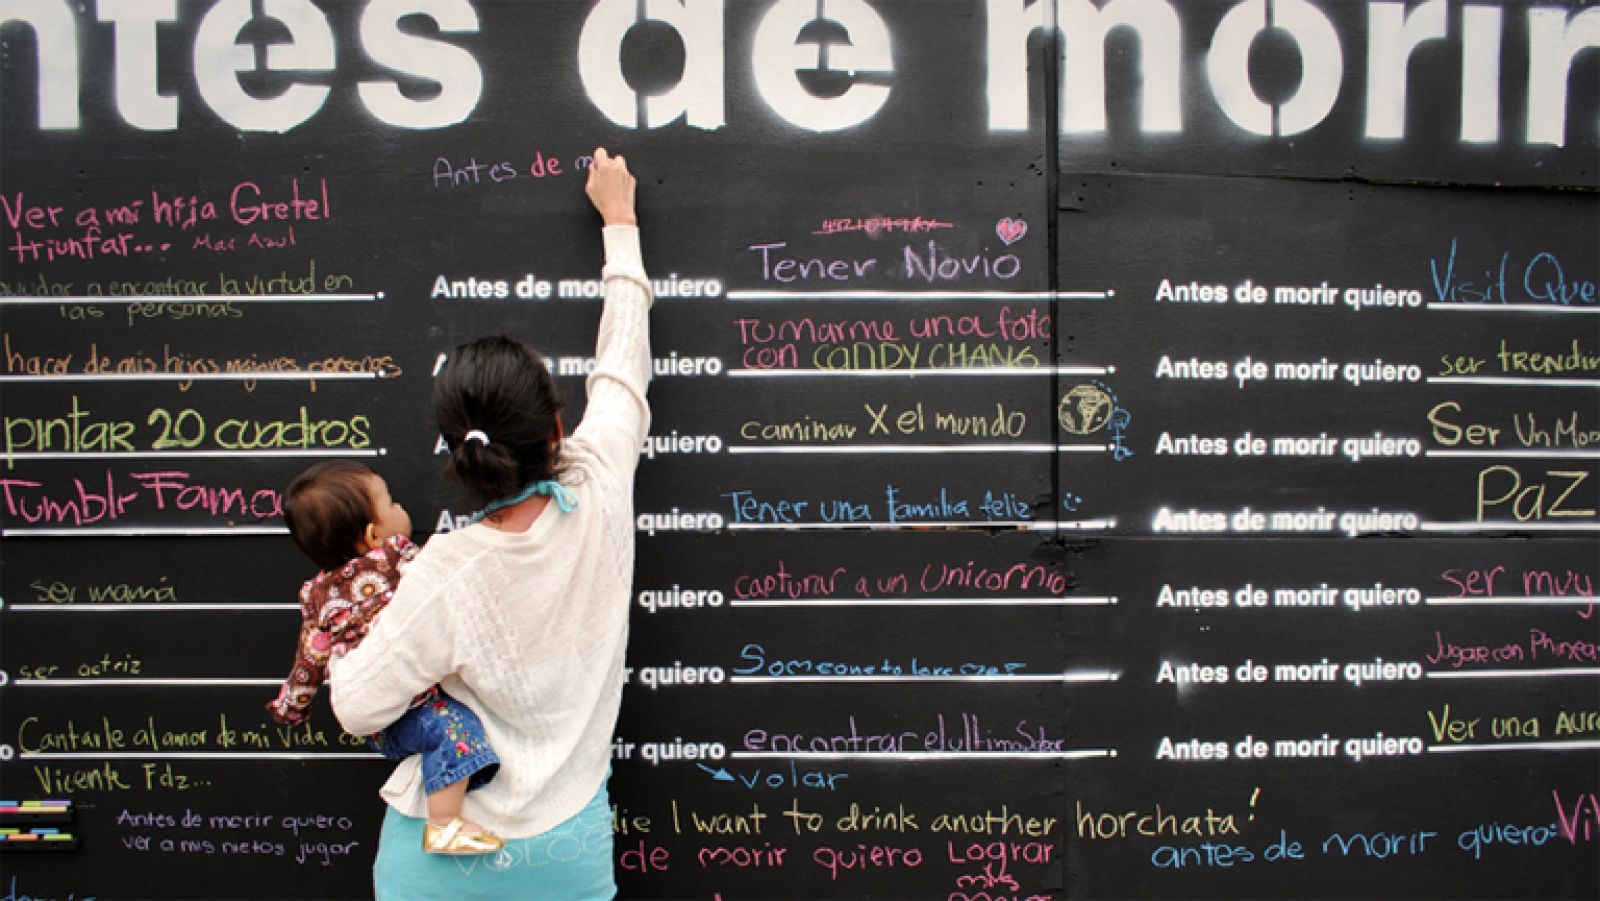 ntes de morir
Antes de m
Ver a mi hija Gretel
triunfar... Mar Azul
a encontrar la virtud en
las personas
hacer de mis hijos mejores personas
pintar 20 cuadros
Tumblr Famo
ser mamá
ser actriz
o Cantarle al amor de mi vida con
Vicente Fdz...
Antes de morir quiero
ver a mis nietos jugar
Antes de mo quiero Tener Novio
mo uiero Tumarme una foto
con CANDY CHANG
A quiero caminar X el mundo
An quiero Tener una Familia feliz :)
quiero capturar a un Unicornio
r quiero Someone to love
ir quiero encontrar el ultimo
volar
die I want to drink another horchata!
de morir quiero Lograr
mis
Antes de morir quiero Visit Que
Antes de morir quiero ser trendin
Antes de morir quiero Ser Un Mo
Antes de morir quiero PaZ
Antes de morir quiero ser muy
Antes de morir quiero Jugar con Phinea
Antes de morir quiero Ver una Auro
antes de morir quiero: Vi